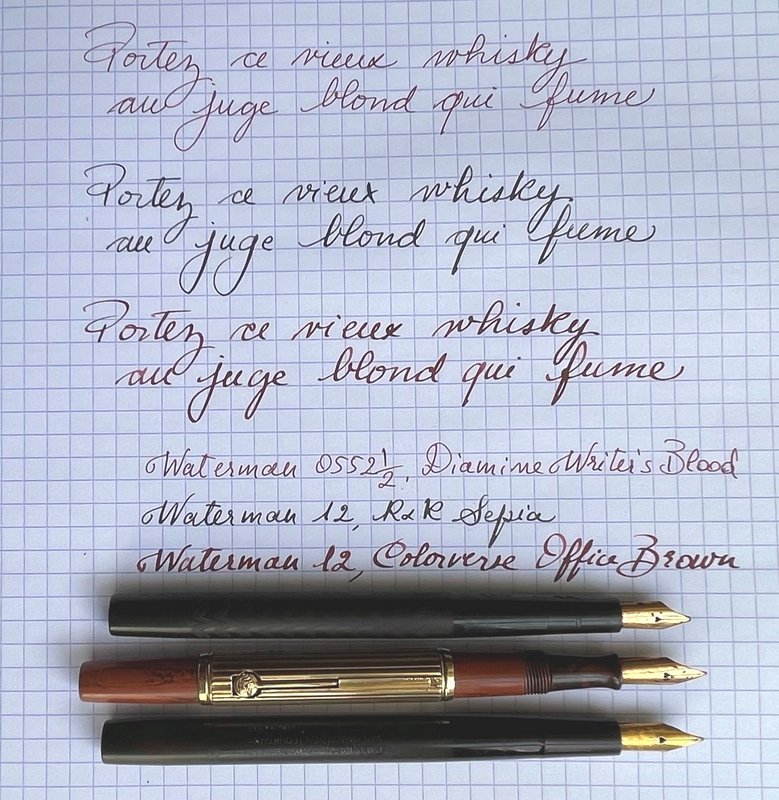 Portez ce vieux whisky
au juge blond qui fume
Portez ce vieux whisky
au juge blond qui fume
Portez ce vieux whisky
au juge blond qui fume
Waterman 0552½, Diamine Writer's Blood
Waterman 12, R&K Sepia
Waterman 12, Colorverse Office Brown